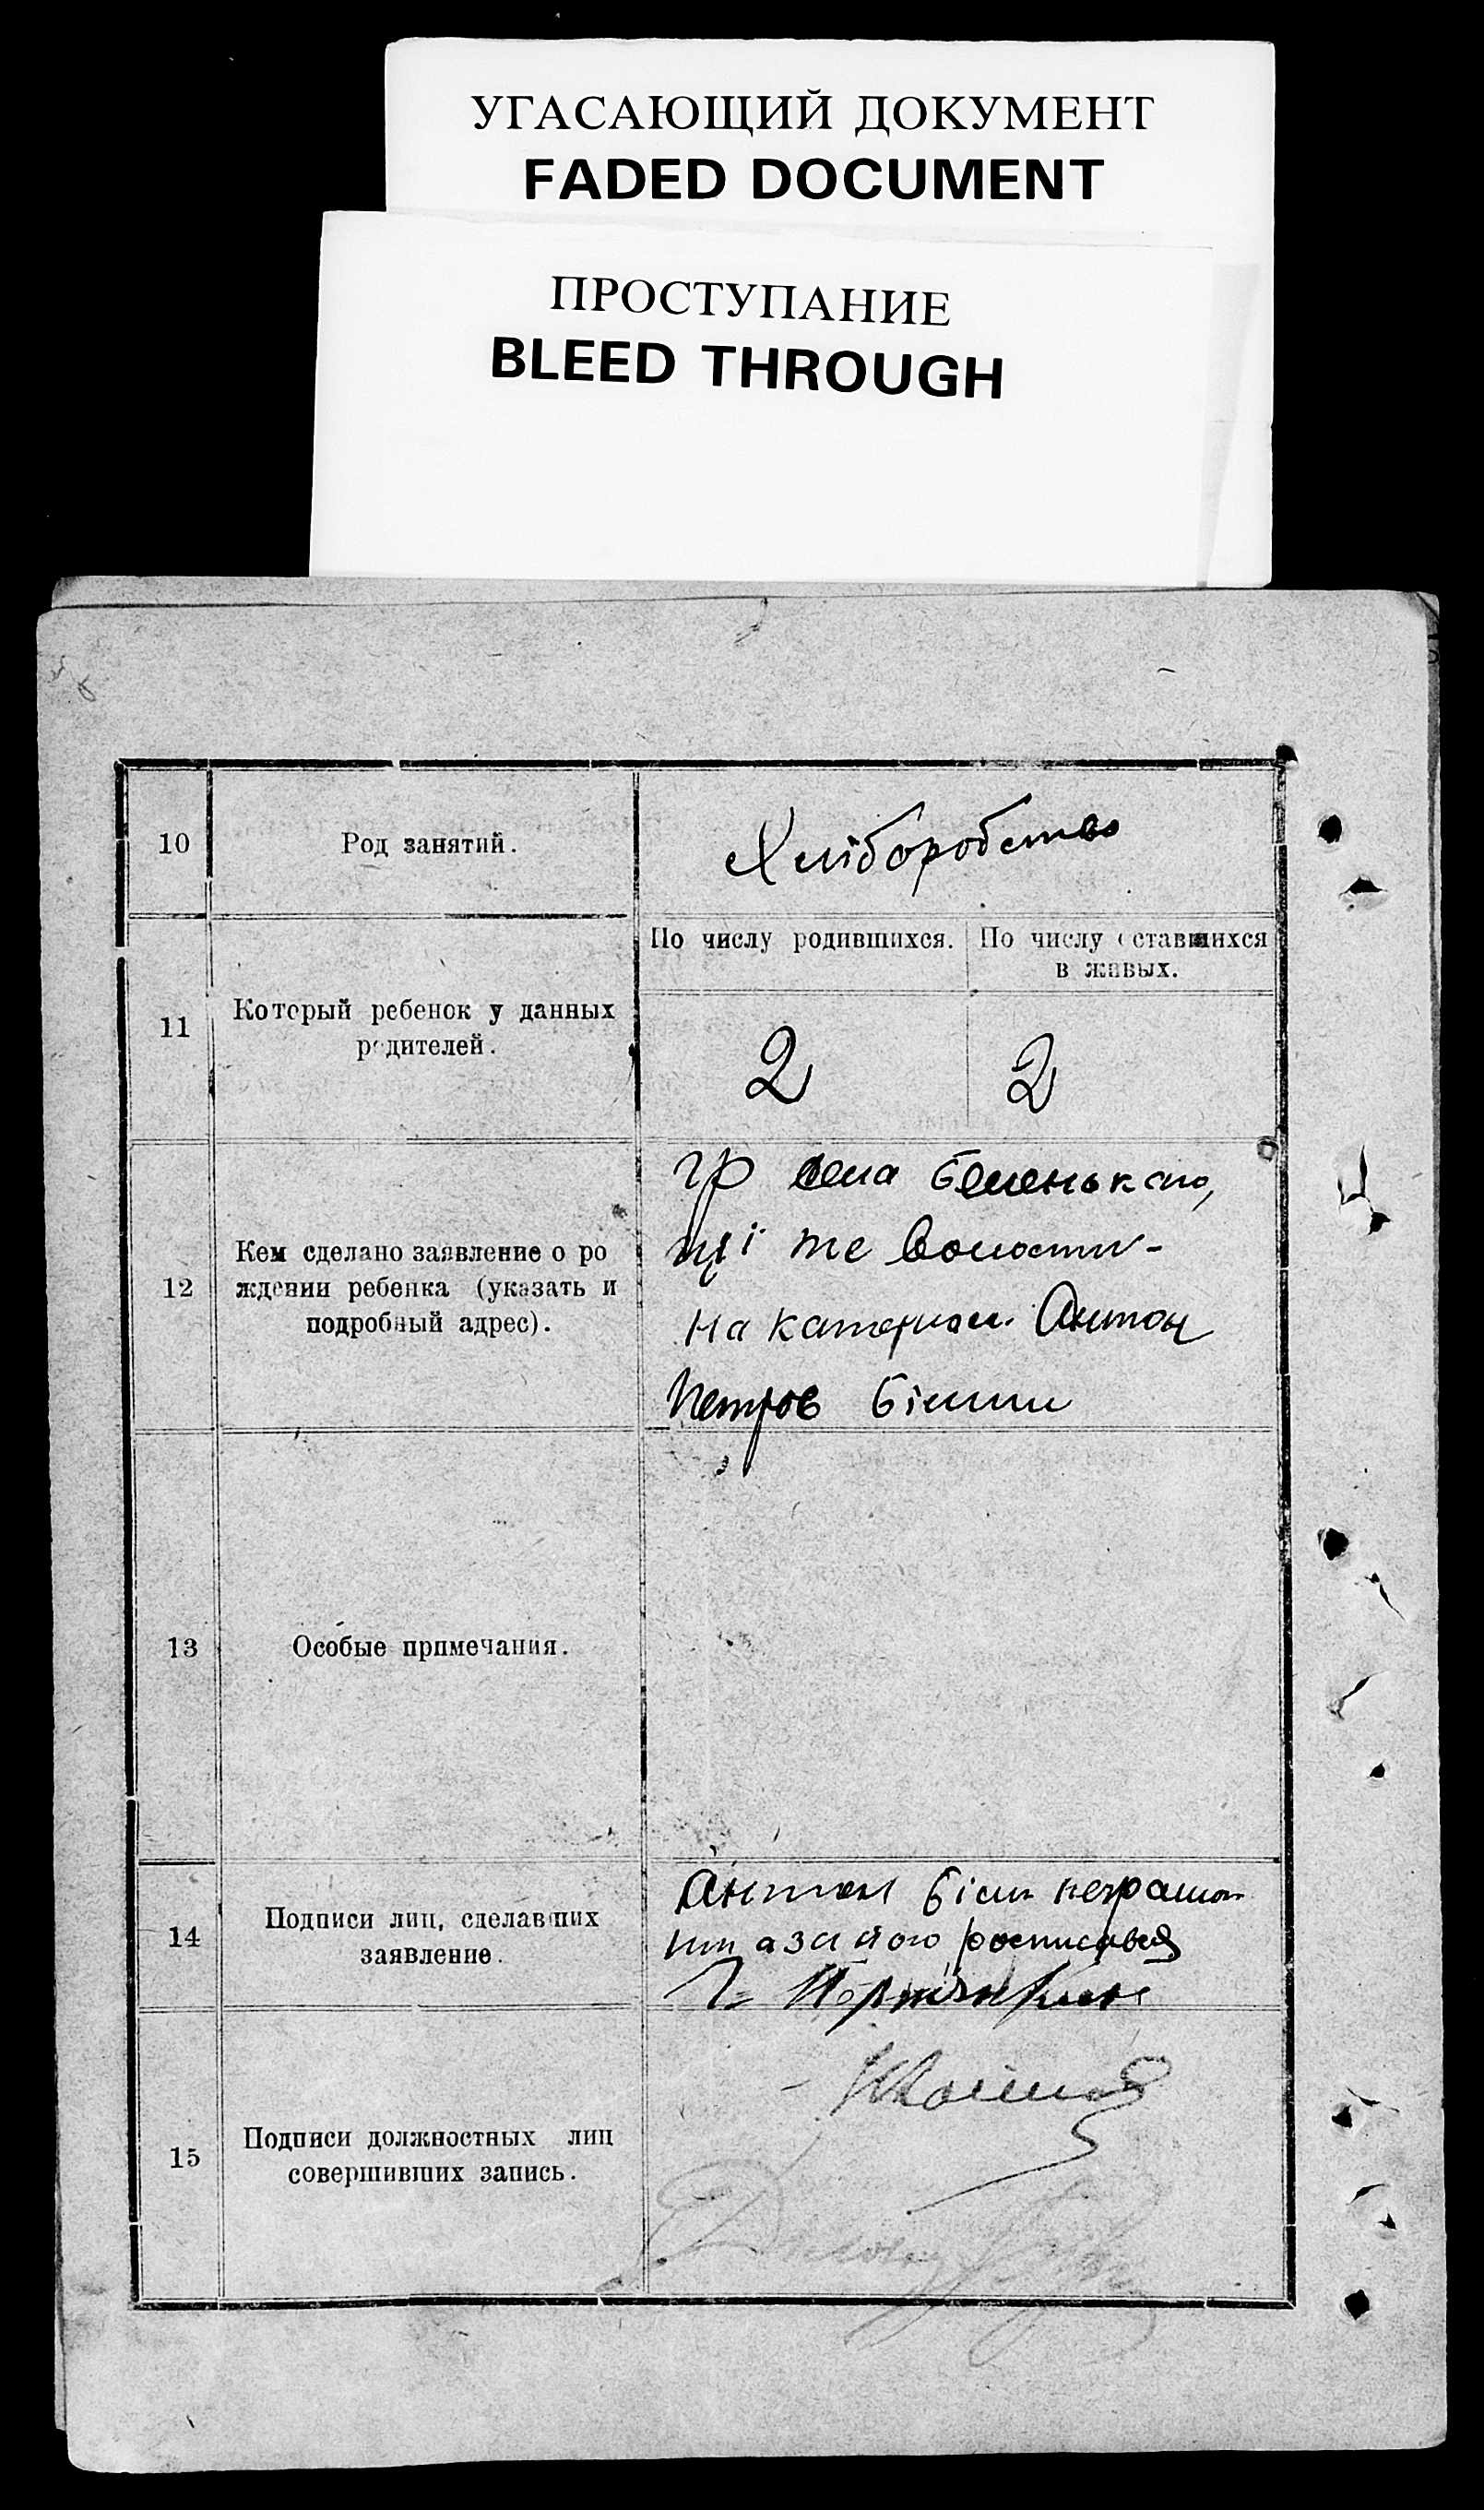 УГАСАЮЩИЙ ДОКУМЕНТ
FADED DOCUMENT
ПРОСТУПАНИЕ
BLEED THROUGH
10
Род занятий.
Хліборобство
11
Который ребенок у данных
родителей.
По числу родившихся.
По числу оставшихся
в живых.
2
2
12
Кем сделано заявление о ро
ждении ребенка (указать и
подробный адрес).
гр села Беленького,
ціі же волости-
Антон
Петров Білии
13
Особые примечания.
14
Подписи лиц, сделавших
заявление.
Антон неграмот
а за його росписався
Г.
15
Подписи должностных лиц
совершивших запись.